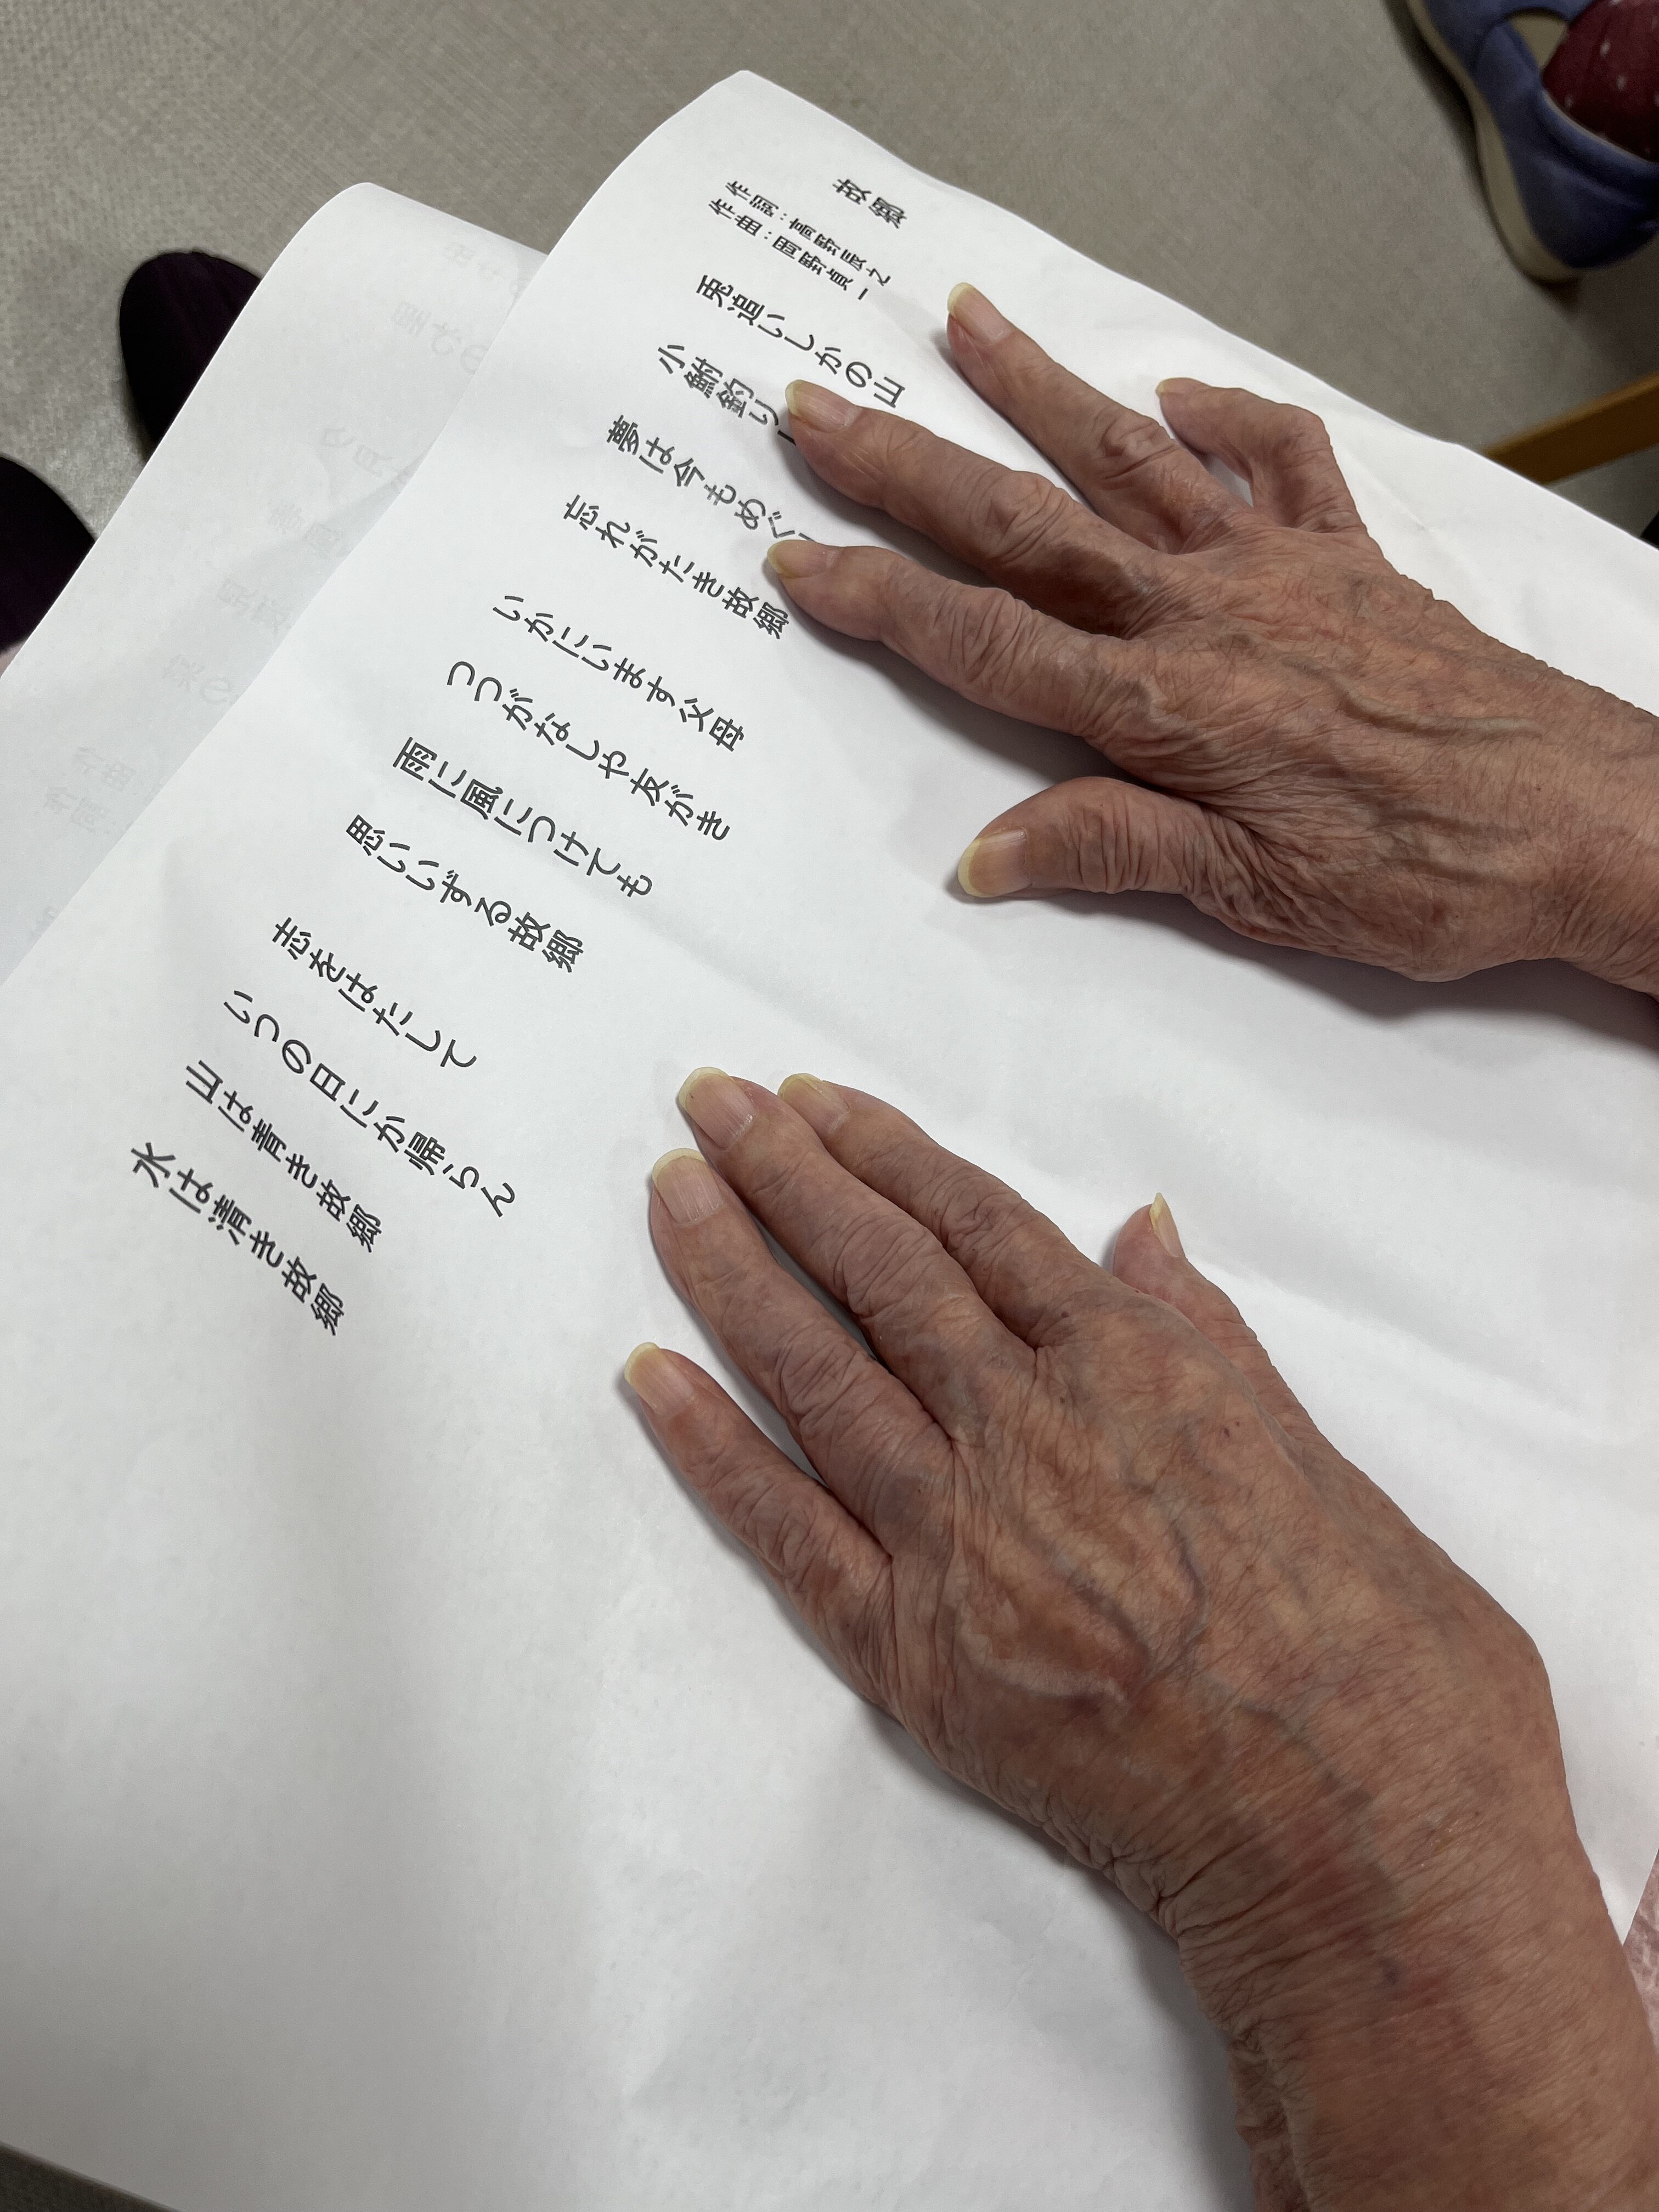 故郷
作詞：高野辰之
作曲：岡野貞一
兎追いしかの山
小鮒釣り
夢は今もめぐ
忘れがたき故郷
いかにいます父母
つつがなしや友がき
雨に風につけても
思いいずる故郷
志をはたして
いつの日にか帰らん
山は青き故郷
水は清き故郷